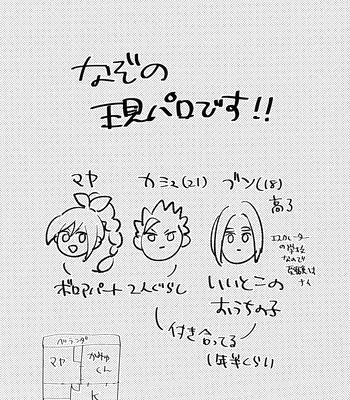 なぞの
現パロです!!
マヤ
カミュ(21)
ブン(18)
高3
エスカレーター
の学校
なので
受験は
ナシ
ボロアパート2人ぐらし
いいとこの
おうちの子
付き合ってる
1年半くらい
ベランダ
マヤ
かみゅ
くん
K